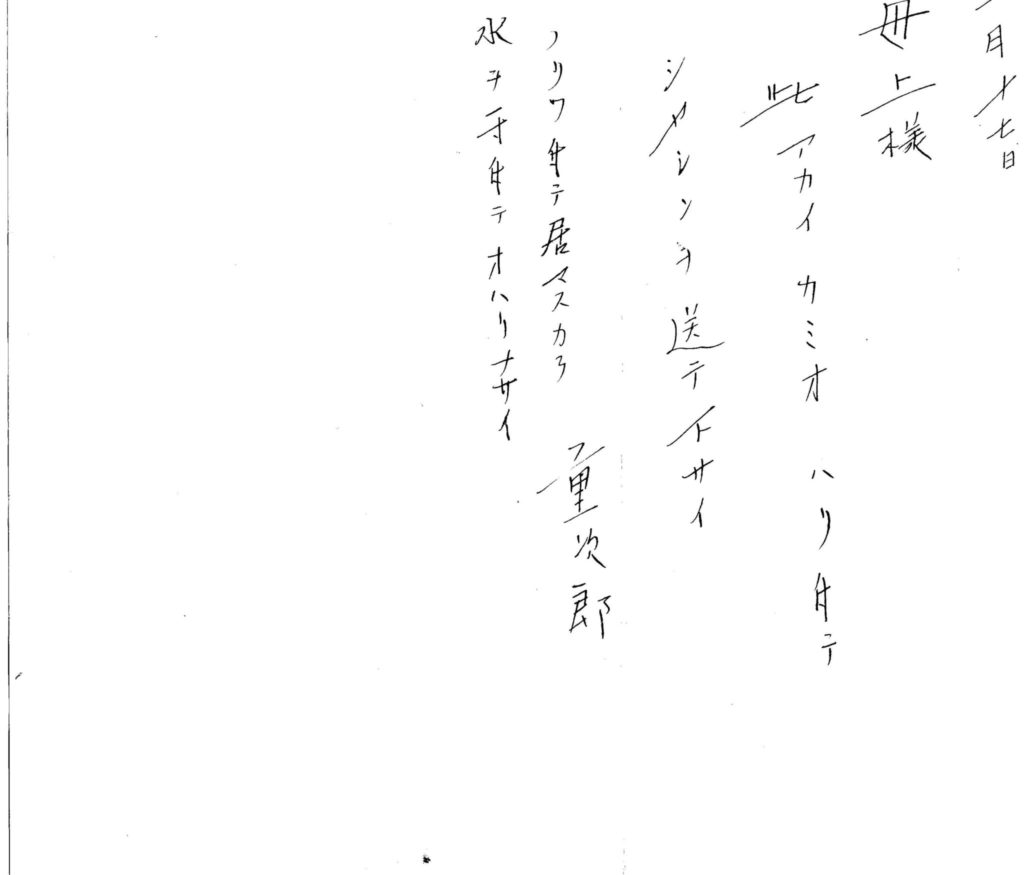 月十七日
母上様
此アカイ カミオ ハリ付テ
シヤシンヲ送テ下サイ
ノリワ付テ居マスカラ
水ヲ付テオハリナサイ
重次郎